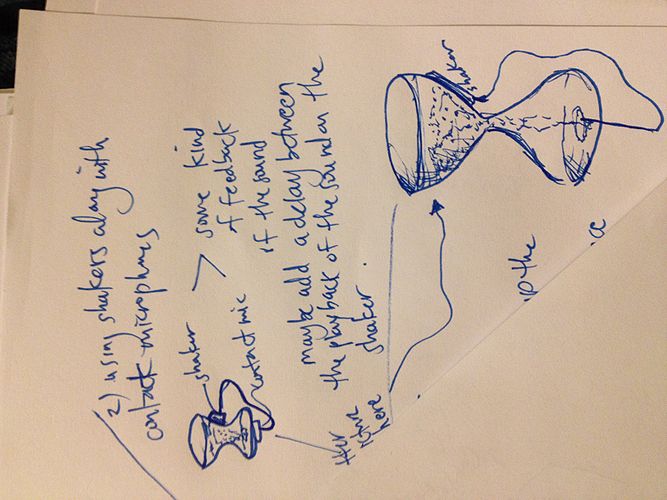 2) using shakers along with
contact microphones
shaker
contact mic
> some kind
of feedback
of the sound
maybe add a delay between
the playback of the sound on the
shaker.
here
shaker
up the